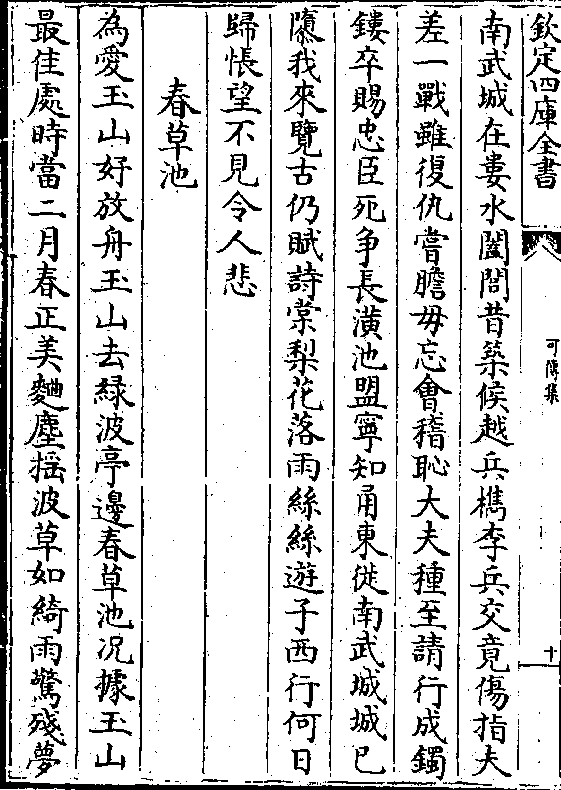 欽定四庫全書
可傳集
十
南武城在婁水闔閭昔築候越兵檇李兵交竟傷指夫
差一戰雖復仇嘗膽毋忘會稽恥大夫種至請行成鐲
鏤卒賜忠臣死争長潢池盟寧知甬東徙南武城城已
隳我來覽古仍賦詩棠梨花落雨絲絲遊子西行何日
歸悵望不見令人悲
春草池
為愛玉山好放舟玉山去緑波亭邊春草池况據玉山
最佳處時當二月春正美麯塵揺波草如綺雨驚殘夢